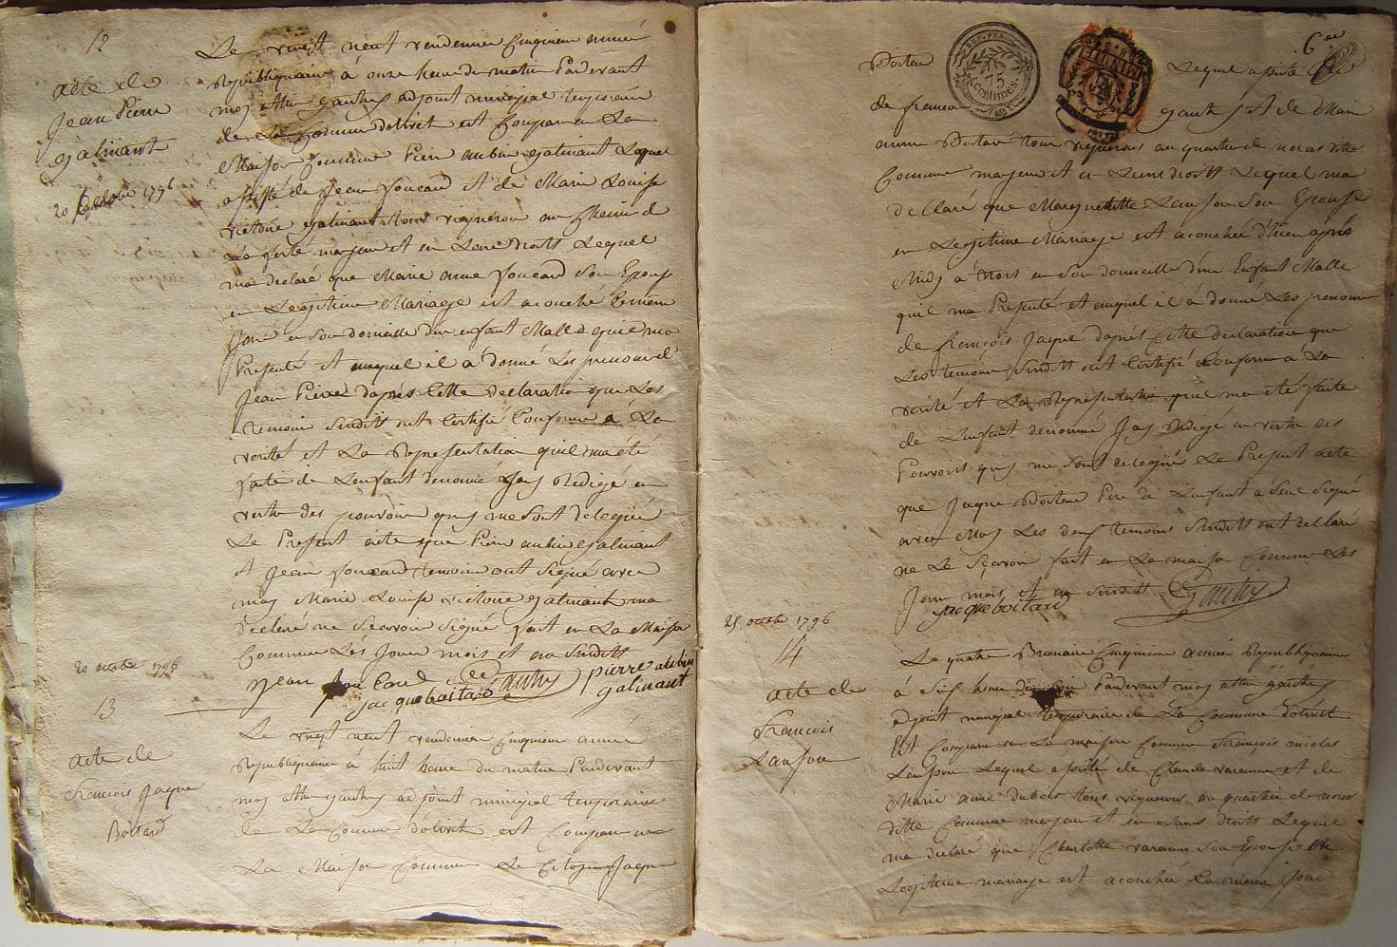 12
acte de
Jean Pierre
Galinant
20 octobre 1796
Le vingt neuf vendemer Cinquieme année
Republiquaine à onze heure du matin Pardevant
moy adjoint municipal
de La Commune d'olivet est Comparu en La
Maison Commune Pierre aubin galinant Lequel
assisté de Jean foucard et de Marie Louise
victoire galinant tous vigneron
La ferté majeur et en Leurs droits Lequel
ma declaré que Marie anne foucard Son Epouse
en Legitime Mariage est acouché
Jour en Son domicille dun enfant Malle quil ma
Presenté et auquel il a donné Les prenoms de
Jean Pierre daprès Cette declaration que Les
temoins Susdits ont Certifié Conforme a La
verité et La Representation quil ma été
faite de Lenfant denomé Jay Redigé en
vertu des pouvoirs quy me Sont delegués
Le Present acte que Pierre aubin galinant
et Jean foucard temoins ont Signé avec
moy Marie Louise victoire galinant ma
declaré ne Scavoir Signé fait en La Maison
Commune Les Jours mois et an Susdits
Jean foucard Gauthy pierre aubin
jacque boitard galinant
20 octobre 1796
13
acte de
francois Jaque
Boitard
Le vingt neuf vendemer Cinquieme année
Republiquaine à huit heure du matin Pardevant
moy adjoint municipal temporaire
de La Commune d'olivet est Comparu en
La Maison Commune Le Citoyen Jaque
6
5
centimes
Boitard Lequel assisté
de francois et de Marie
anne Boitard tous vignerons au quartier de
Commune majeur et en Leurs droits Lequel ma
declaré que Margueritte Lanson Son Epouse
en Legitime Mariage est acouchée d'hier après
Midy à trois en Son domicille d'un Enfant Malle
quil ma Presenté et auquel il à donné Les prenoms
de françois Jaque daprès Cette declaration que
Les temoins Susdits ont Certifié Conforme a La
verité et La Representation quil ma été faite
de Lenfant denommé Jay Redigé en vertu des
Pouvoirs quy me Sont delegués Le Present acte
que Jaque Boitard Pere de Lenfant a Seul Signé
avec Moy Les deux temoins Susdits ont declaré
ne Le Scavoir fait en La maison Commune Les
Jour mois et an Susdits Gauthy
jacque boitard
25 octobre 1796
14
acte de
francois
Lanson
Le quatre Brumaire Cinquieme année Republiquaine
à heure Pardevant moy
adjoint municipal temporaire de La Commune d'olivet
Est Comparu en La maison Commune francois nicolas
Lanson Lequel assisté de Claude varenne et de
Marie anne dubois tous vignerons au quartier de
ditte Commune majeur et en Leurs droits Lequel
ma declaré que Charlotte varenne Son Epouse en
Legitime mariage est acouchée Jour